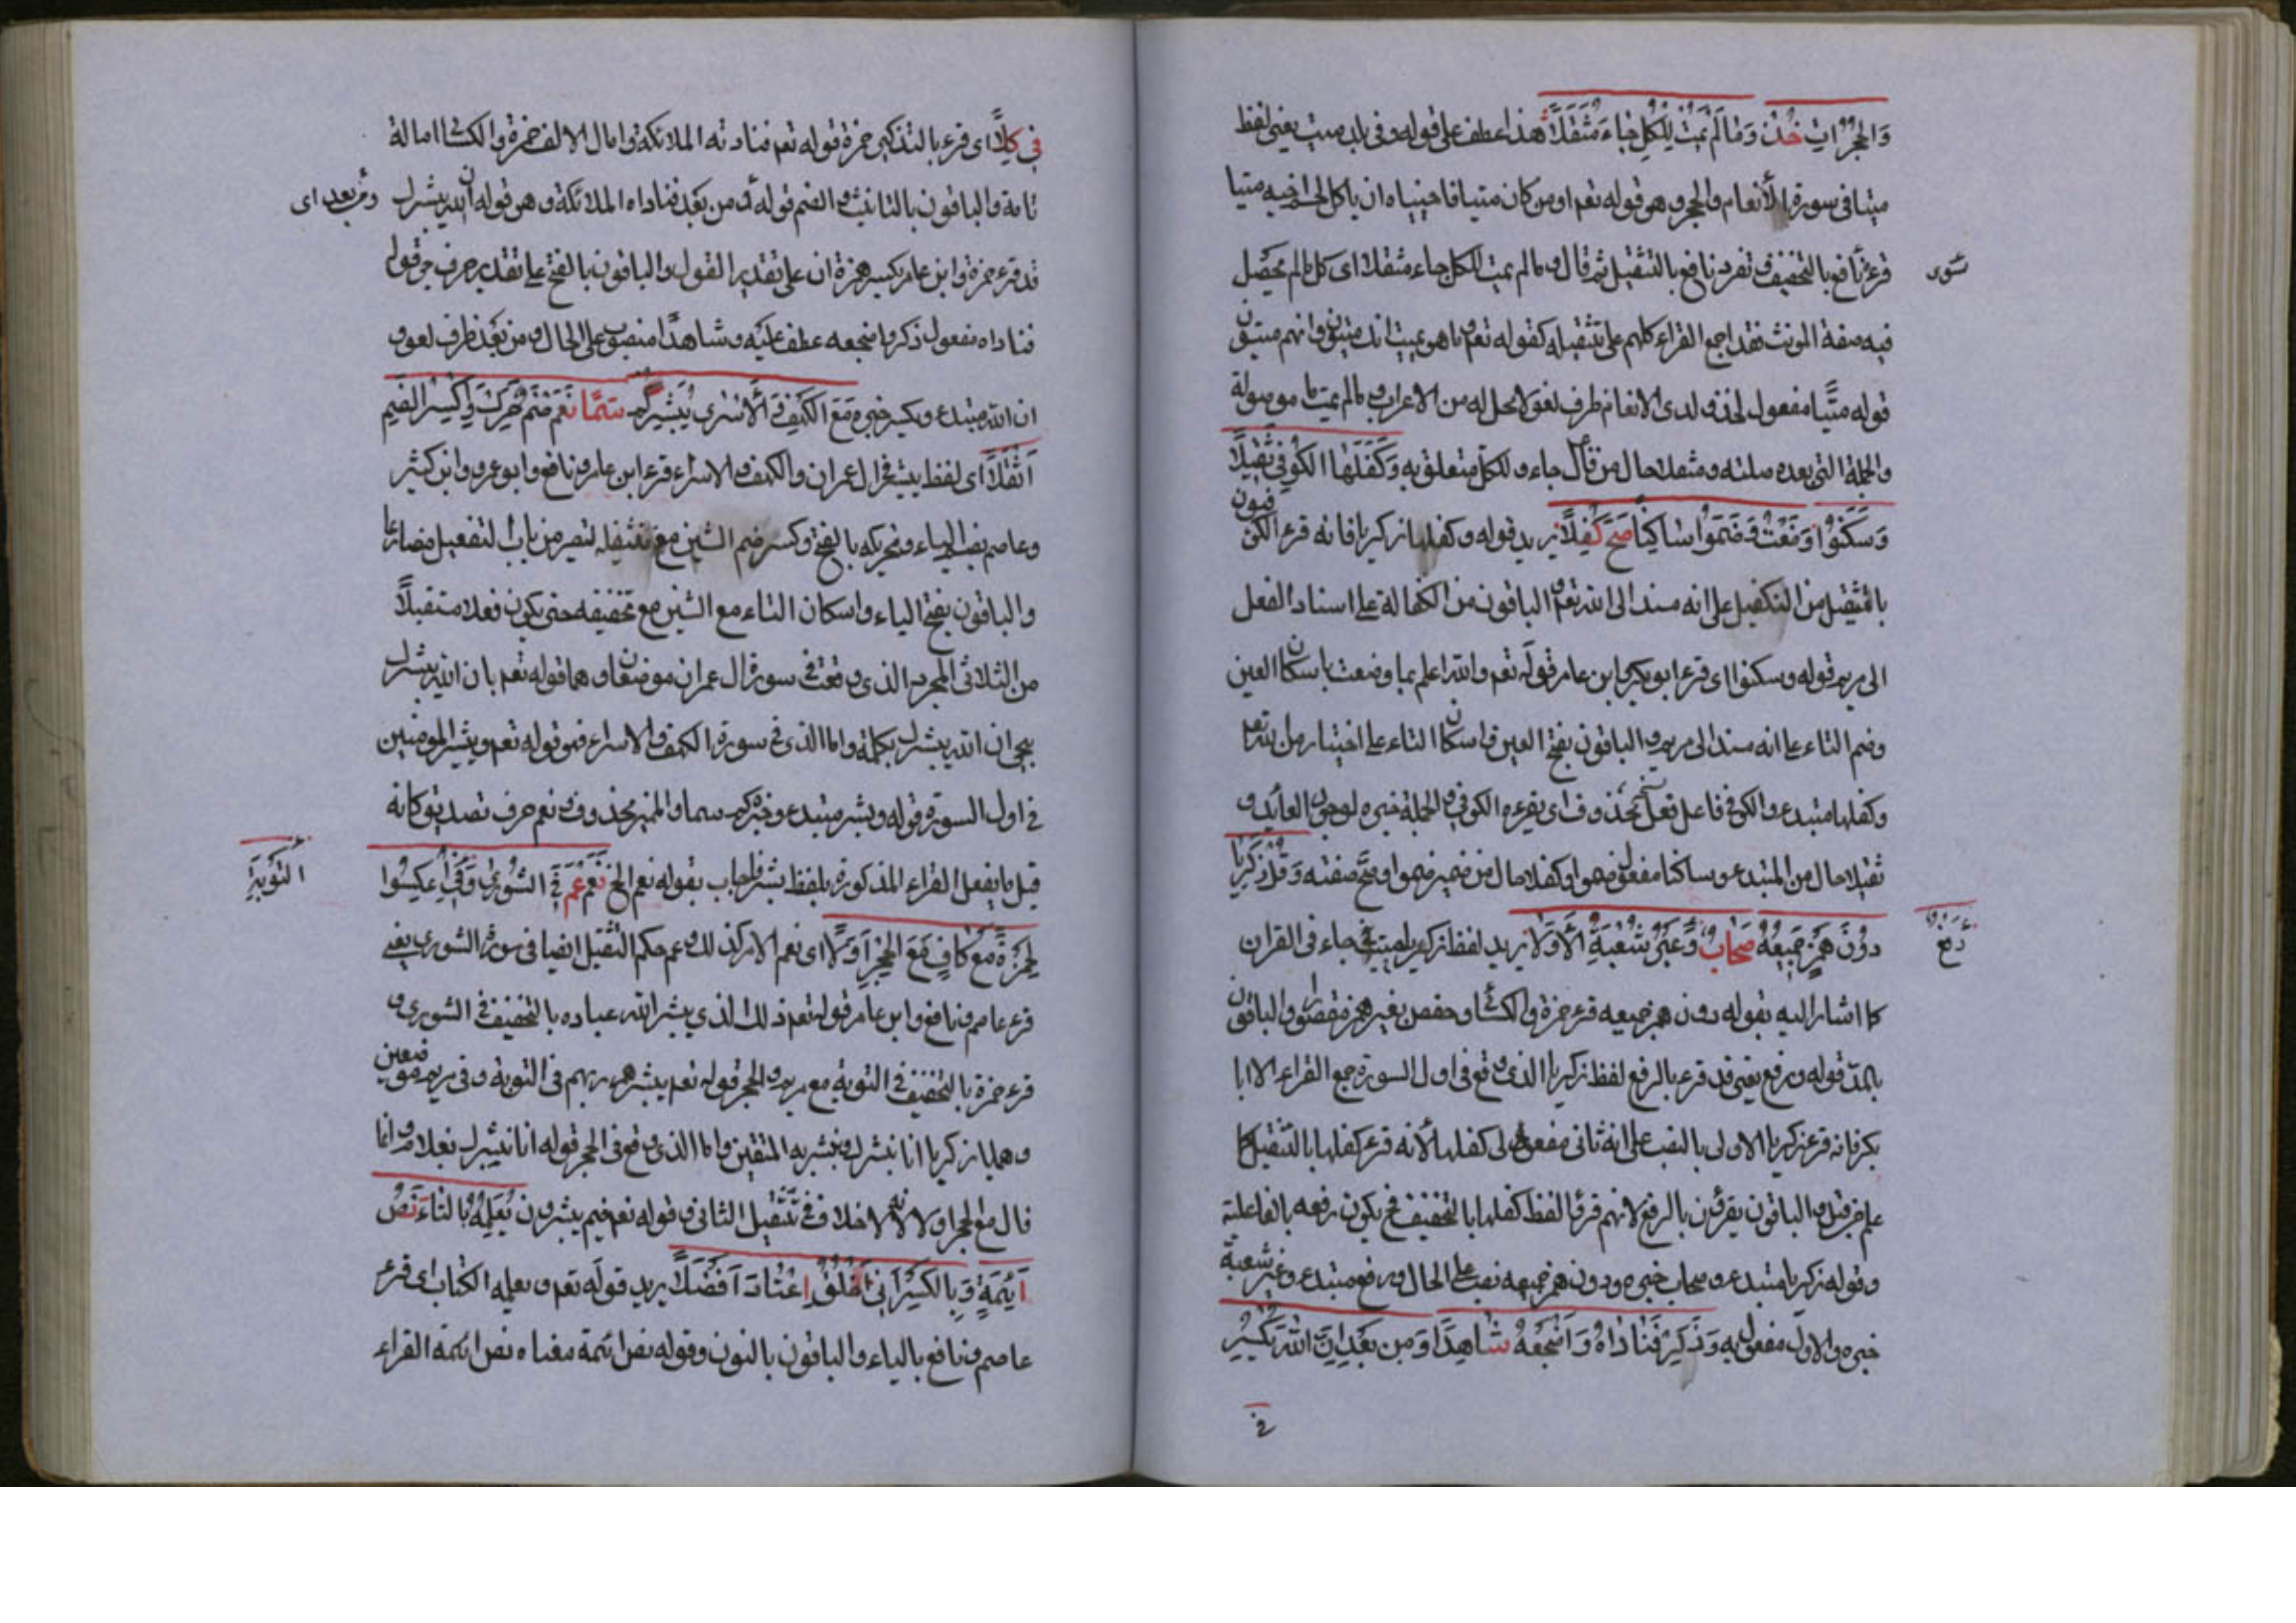 وَالحُجُرَاتِ خُذْ وَمَا لَمْ يَمُتْ لِلكُلِّ جَاءَ مُثَقَّلَا هذا عطف على قوله وفى بلد ميت يعنى لفظ
ميتا فى سورة الأنعام والحجر وهو قوله تعم او من كان ميتا فاحييناه ان ياكل لحم اخيه ميتا
قرء نافع بالتخفيف وتفرد نافع بالتثقيل ثم قال وما لم يمت للكل جاء مثقلا اى كل ما لم يحصل
سوى
فيه صفة الموت فقد اجمع القراء كلهم على تثقيله كقوله تعم وما هو بميت انك ميت وانهم ميتون
قوله ميتًا مفعول لخذ ولدى الانعام ظرف لغو لا محل له من الاعراب وما لم يمت ما موصولة
والجملة التى بعده صلته ومثقلا حال من فاعل جاء وللكل متعلق به وَكَفَّلَهَا الكُوفِي ثَقِيلًا
وَسَكَّنُوا وَضَعْتُ وَضَمُّوا سَاكِنًا صَحَّ كُفَّلَا يريد قوله وكفلها زكريا فانه قرء الكوفيون
بالتثقيل من التكفيل على انه مسند الى الله تعم والباقون من الكفالة على اسناد الفعل
الى مريم قوله وسكنوا اى قرء ابو بكر وابن عامر قوله تعم والله اعلم بما وضعت باسكان العين
وضم التاء على انه مسند الى مريم والباقون بفتح العين واسكان التاء على اختبار من الله تعم
وكفلها مبتدء والكوفى فاعل فعل محذوف اى يقرءه الكوفى والجملة خبره لوجود العائد و
ثقيلا حال من المبتدء وساكنا مفعول ضموا وكفلا حال من ضمير ضموا وصح صفته وَقُلْ زَكَرِيَّا
دُونَ هَمْزِ جَمِيعِهِ صِحَابٌ وَغَيْرُ شُعْبَةَ الأَوَّلَا يريد لفظ زكريا حيث جاء فى القران
رَفْعٌ
كما اشار اليه بقوله دون همز جميعه قرء حمزة والكسائى وحفص بغير همز مقصورا والباقون
بالمد قوله ورفع يعنى قد قرء بالرفع لفظ زكريا الذى وقع فى اول السورة جميع القراء الا ابا
بكر فانه قرء زكريا الاولى بالنصب على انه ثانى مفعولى كفلها لأنه قرء كفلها بالتثقيل كما
علم من قبل والباقون يقرؤن بالرفع لانهم قرؤا لفظ كفلها بالتخفيف فح يكون رفعه بالفاعلية
وقوله زكريا مبتدء وصحاب خبره ودون همز جميعه نصب على الحال ورفع مبتدء وغير شعبة
خبره والاول مفعول به وَذَكِّرْ فَنَادَاهُ وَأَضْجِعْهُ شَاهِدًا وَمِنْ بَعْدُ اِنَّ اللهَ يُكْسَرُ
فى
فِي كِلَا اى قرء بالتذكير حمزة قوله تعم فنادته الملائكة وامال الالف حمزة والكسائى امالة
تامة والباقون بالتانيث والضم قوله ومن بعد فناداه الملائكة وهو قوله ان الله يبشرك
ومن بعد اى
قد قرء حمزة وابن عامر بكسر همزة ان على تقدير القول والباقون بالفتح على تقدير حرف جر قوله
فناداه مفعول ذكر واضجعه عطف عليه وشاهدًا منصوب على الحال ومن بعد ظرف لغو و
ان الله مبتدء ويكسر خبره مَعَ الكَهْفِ وَالاِسْرَاءِ يُبَشِّرُ كَمْ سَمَا نَعَمْ ضُمَّ حَرِّكْ وَاكْسِرِ الضَّمَّ
اَثْقَلَا اى لفظ يبشر فى ال عمران والكهف والاسراء قرء ابن عامر ونافع وابو عمرو وابن كثير
وعاصم بضم الياء وتحريكه بالفتح وكسر ضم الشين مع تثقيله لتصير من باب التفعيل مضارعا
والباقون بفتح الياء واسكان الباء مع الشين مع تخفيفه حتى يكون فعلا مستقبلًا
من الثلاثى المجرد الذى وقعت فى سورة ال عمران موضعان وهما قوله تعم بان الله يبشرك
بيحيى ان الله يبشرك بكلمة واما الذى فى سورة الكهف والاسراء فهو قوله تعم ويبشر المومنين
فى اول السورة قوله ويبشر مبتدء وخبره كم سما والمميز محذوف ونعم حرف تصديق وكانه
قيل ما يفعل القراء المذكورة بلفظ يبشر فاجاب بقوله نعم الخ نَعَمْ عَمَّ فِي الشُّورَى وَفِي عَكِسُوا
التَّوْبَةِ
لِحَمْزَةَ مَعْ كَافٍ مَعَ الحِجْرِ أَوَّلَا اى نعم الامر كذلك وعم حكم التثقيل ايضا فى سورة الشورى يعنى
قرء عاصم ونافع وابن عامر قوله تعم ذلك الذى يبشر الله عباده بالتخفيف فى الشورى و
قرء حمزة بالتخفيف فى التوبة مع مريم والحجر قوله تعم يبشرهم ربهم فى التوبة وفى مريم موضعين
وهما يا زكريا انا نبشرك ونبشر به المتقين واما الذى وقع فى الحجر قوله انا نبشرك بغلام وانما
قال مع الحجر اولا لانه لا خلاف فى تثقيل الثانى وقوله تعم فبم يبشرون نُعَلِّمُهُ بِاليَاءِ نَصُّ
اَئِمَّةٍ وَبِالكَسْرِ اَنِّي اَخْلُقُ اعْتَادَ اَفْصَلَا يريد قوله تعم ويعلمه الكتاب اى قرء
عاصم ونافع بالياء والباقون بالنون وقوله نص ائمة معناه نص ائمة القراء